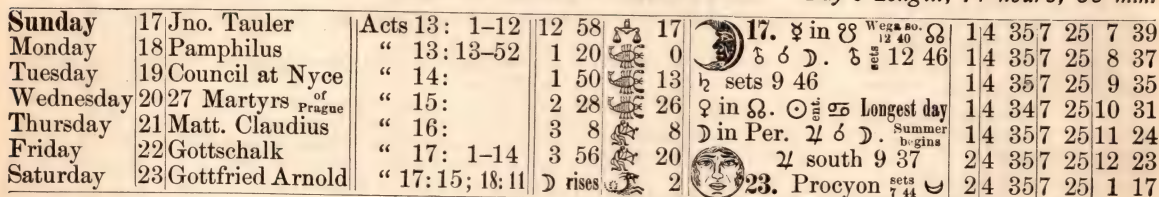 Day's Length, 14 hours, 50 min.
Sunday 17 Jno. Tauler Acts 13: 1–12 12 58 17 17. ☿ in ☋ Wega so. 12 40 ☊ 1 4 35 7 25 7 39
Monday 18 Pamphilus “ 13: 13–52 1 20 0 ♄ ☌ ☽. ♄ sets 12 46 1 4 35 7 25 8 37
Tuesday 19 Council at Nyce “ 14: 1 50 13 ♄ sets 9 46 1 4 35 7 25 9 35
Wednesday 20 27 Martyrs of Prague “ 15: 2 28 26 ♀ in ☊. ☉ ent. ♋ Longest day 1 4 34 7 25 10 31
Thursday 21 Matt. Claudius “ 16: 3 8 8 ☽ in Per. ♃ ☌ ☽. Summer begins 1 4 35 7 25 11 24
Friday 22 Gottschalk “ 17: 1–14 3 56 20 ♃ south 9 37 2 4 35 7 25 12 23
Saturday 23 Gottfried Arnold “ 17: 15; 18: 11 ☽ rises 2 23. Procyon sets 7 44 2 4 35 7 25 1 17